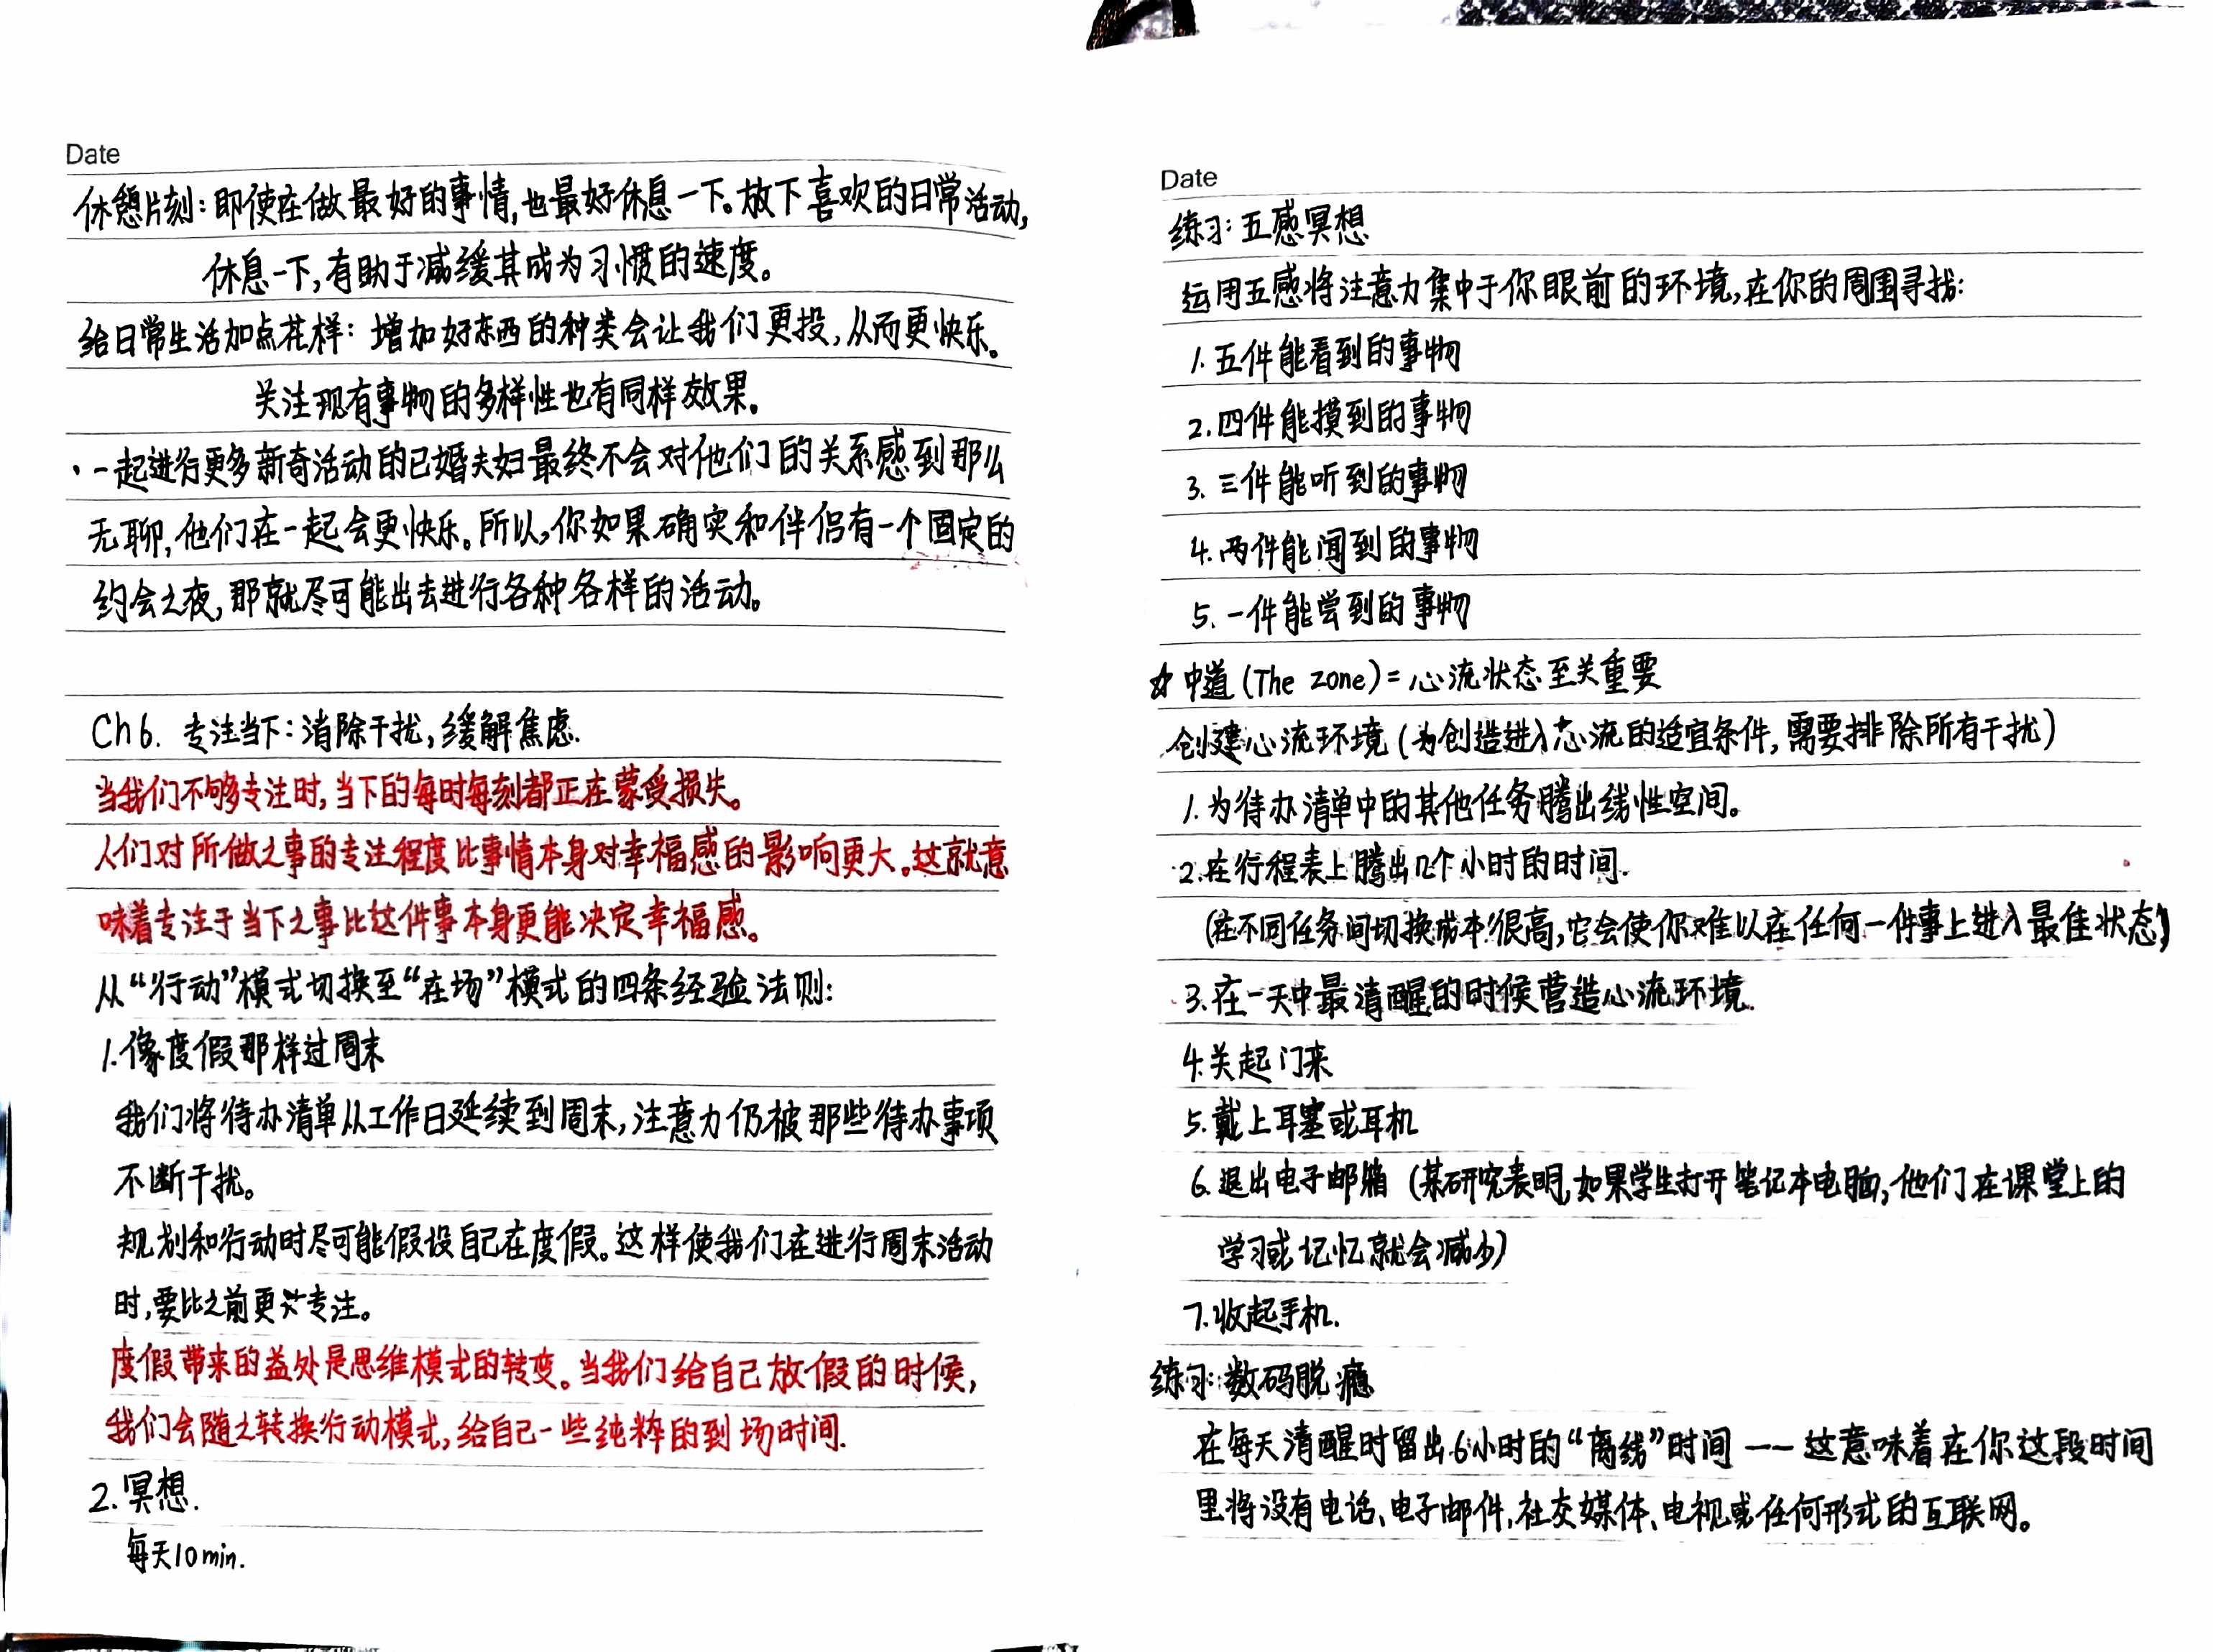 Date
休憩片刻：即使在做最好的事情，也最好休息一下。放下喜欢的日常活动，
休息一下，有助于减缓其成为习惯的速度。
给日常生活加点花样：增加好东西的种类会让我们更投，从而更快乐。
关注现有事物的多样性也有同样效果。
·一起进行更多新奇活动的已婚夫妇最终不会对他们的关系感到那么
无聊，他们在一起会更快乐。所以，你如果确实和伴侣有一个固定的
约会之夜，那就尽可能出去进行各种各样的活动。
Ch6. 专注当下：消除干扰，缓解焦虑.
当我们不够专注时，当下的每时每刻都正在蒙受损失。
人们对所做之事的专注程度比事情本身对幸福感的影响更大。这就意
味着专注于当下之事比这件事本身更能决定幸福感。
从“行动”模式切换至“在场”模式的四条经验法则：
1.像度假那样过周末
我们将待办清单从工作日延续到周末，注意力仍被那些待办事项
不断干扰。
规划和行动时尽可能假设自己在度假。这样使我们在进行周末活动
时，要比之前更专注。
度假带来的益处是思维模式的转变。当我们给自己放假的时候，
我们会随之转换行动模式，给自己一些纯粹的到场时间.
2.冥想.
每天10min.
Date
练习：五感冥想
运用五感将注意力集中于你眼前的环境，在你的周围寻找：
1.五件能看到的事物
2.四件能摸到的事物
3.三件能听到的事物
4.两件能闻到的事物
5.一件能尝到的事物
☆中道(The zone)=心流状态至关重要
创建心流环境(为创造进入心流的适宜条件，需要排除所有干扰)
1.为待办清单中的其他任务腾出线性空间。
2.在行程表上腾出几个小时的时间.
(在不同任务间切换成本很高，它会使你难以在任何一件事上进入最佳状态)
3.在一天中最清醒的时候营造心流环境.
4.关起门来
5.戴上耳塞或耳机
6.退出电子邮箱(某研究表明，如果学生打开笔记本电脑，他们在课堂上的
学习或记忆就会减少)
7.收起手机.
练习：数码脱瘾
在每天清醒时留出6小时的“离线”时间——这意味着在你这段时间
里将没有电话、电子邮件，社交媒体、电视或任何形式的互联网。